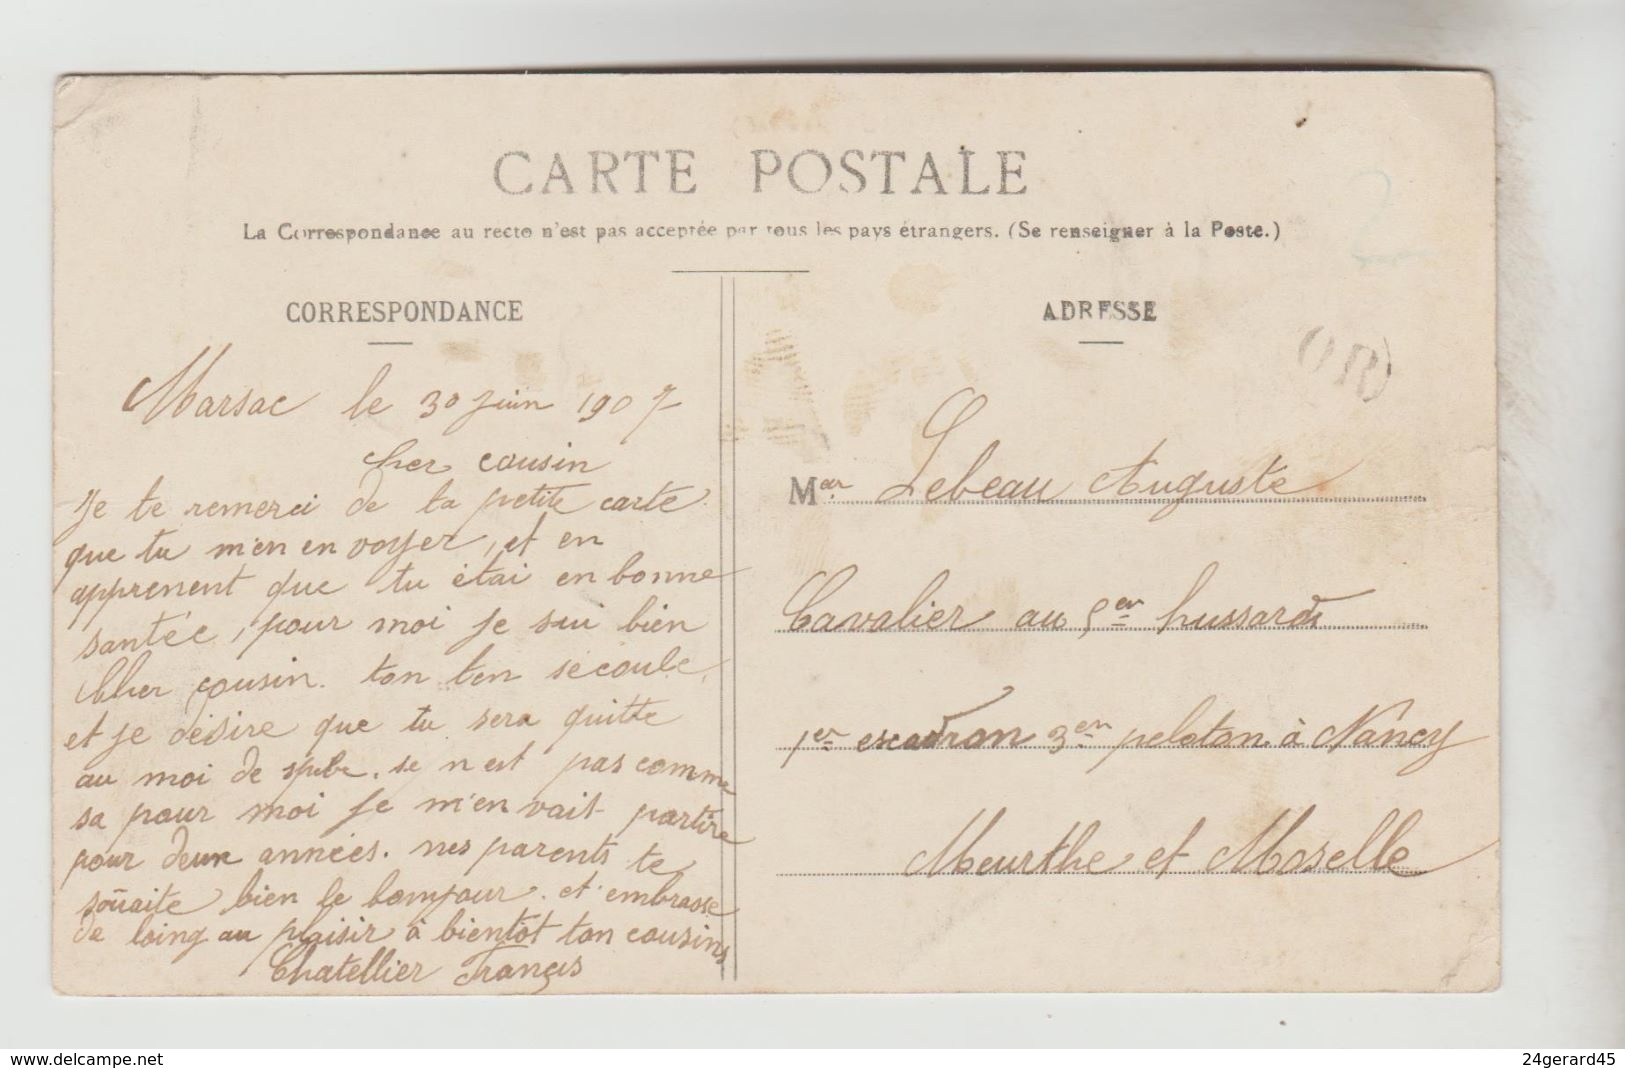 CARTE POSTALE
La Correspondance au recto n'est pas acceptée par tous les pays étrangers. (Se renseigner à la Poste.)
CORRESPONDANCE
Marsac le 30 juin 1907
cher cousin
Je te remerci de ta petite carte
que tu m'en en voyer, et en
apprenent que tu étai en bonne
santée, pour moi je sui bien
Cher cousin. ton ten sécoule,
et je désire que tu sera quitte
au moi de se n'est pas comme
sa pour moi je m'en vait partire
pour deux années. mes parents te
souaite bien le bonjour. et embrasse
de loing au plaisir à bientôt ton cousins
Chatellier Françis
ADRESSE
OR
Mr Lebeau Auguste
Cavalier au 5er hussards
1er escadron 3em peloton à Nancy
Meurthe et Moselle
delcampe.net
24gerard45